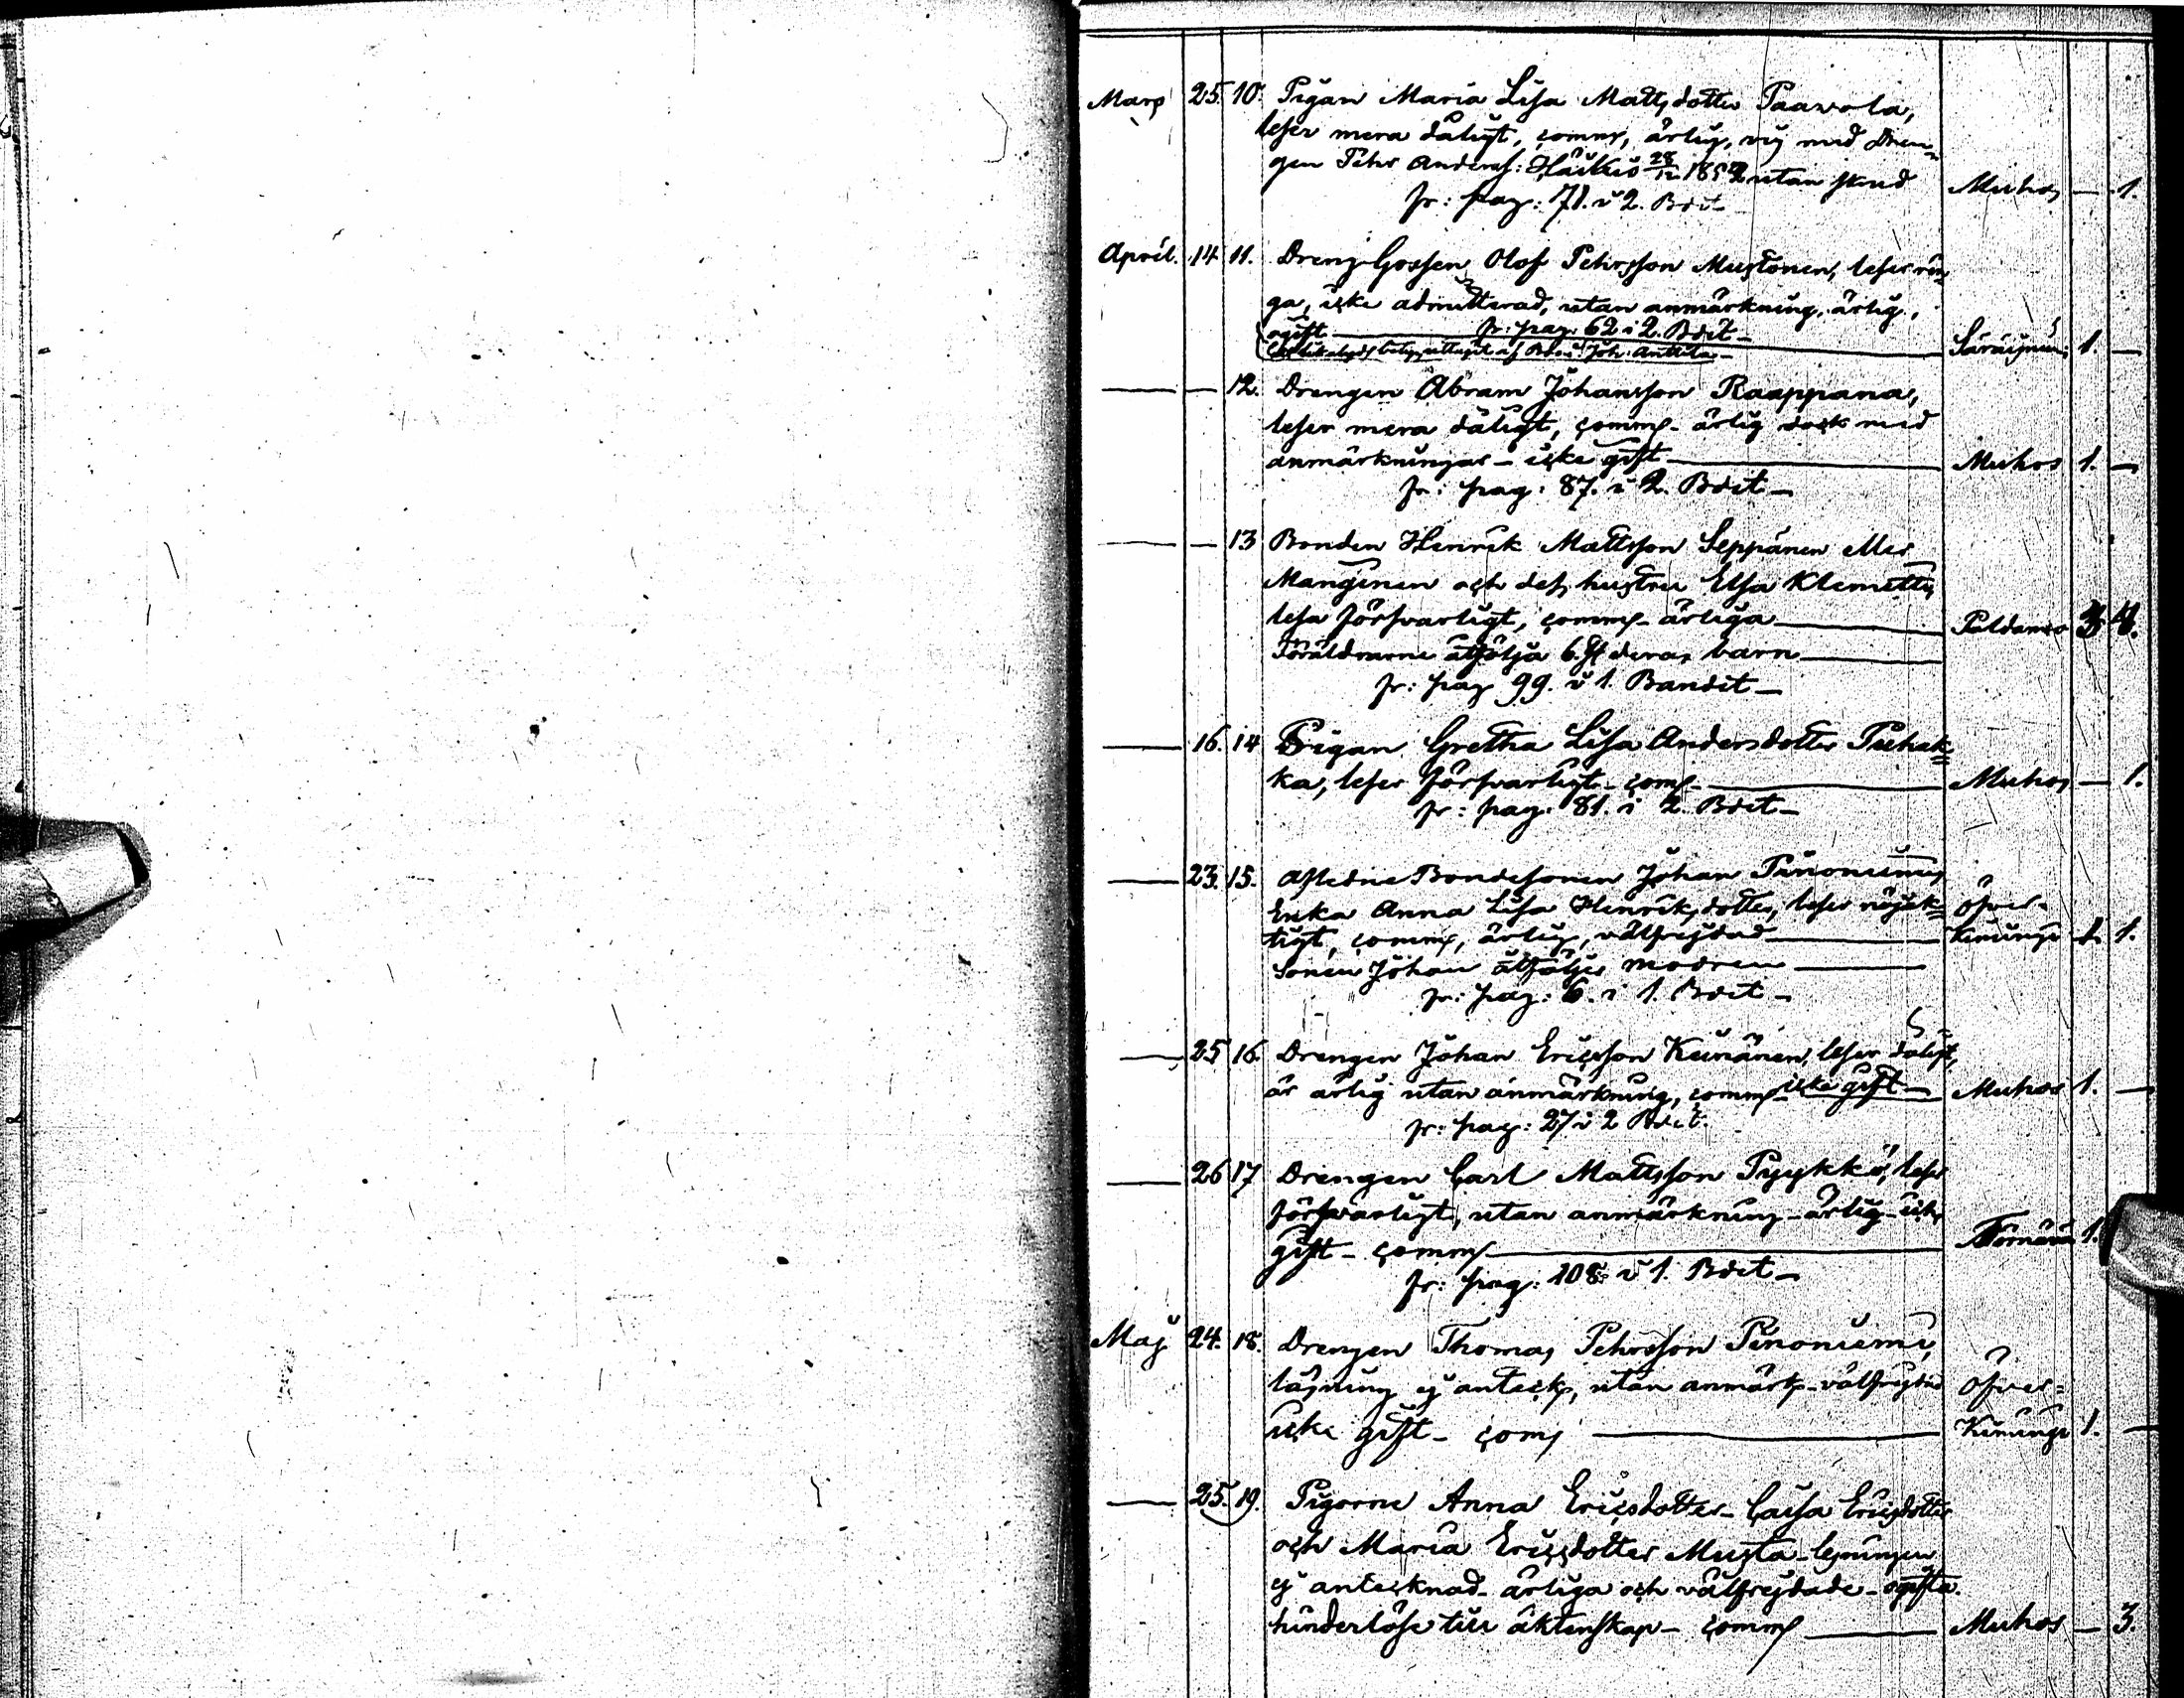 Mars 25. 10. Pigan Maria Lisa Mattsdotter Paavola,
leser mera dåligt, comm, ärlig, vig med Dren-
gen Pehr Anderss: Häikiö 28/12 1852 utan skud Muhos — 1.
fr: pag: 71. i 2. Bdet
April. 14 11. Dreng Gossen Olof Pehrsson Mustonen, leser rin
ga, icke admitterad, utan anmärkning, ärlig,
ogift fr: pag: 62 i 2. Bdet
Joh: Anttila Säräisniemi 1. —
— — 12. Drengen Abram Johansson Raappana,
leser mera dåligt, comm - ärlig dock med
anmärkningar - icke gift Muhos 1. —
fr: pag: 87. i 2. Bdet —
— — 13 Bonden Henrik Mattsson Seppänen eller
Manginen och dess hustru Elsa Klemetts
lesa försvarligt, comm - ärliga Paldamo 3 4.
Föräldrarne åtfölja 6 st deras barn
fr: pag 99. i 1. Bandet —
— 16. 14 Pigan Gretha Lisa Andersdotter Puhak=
ka, leser försvarligt - com Muhos — 1.
fr: pag: 81. i 2. Bdet —
— 23. 15. Afledne Bondesonen Johan Pinoniemis
Enka Anna Lisa Henriksdotter, leser nöjak= öfver-
tigt, comm, ärlig, välfrejdad Kiminge 1. 1.
Sonen Johan åtföljer modren
fr: pag: 6. i 1. Bdet —
— 25 16 Drengen Johan Ericsson Keinänen, leser dåligt,
är ärlig utan anmärkning, comm - icke gift — Muhos 1. —
fr: pag: 27 i 2 Bdet.
— 26 17 Drengen Carl Mattsson Pyykkö, leser
försvarligt, utan anmärkning - ärlig - icke
gift - comm Törnävä 1.
fr: pag: 108 i 1. Bdet —
Maj 24. 18. Drengen Thomas Pehrsson Pinoniemi,
läsning ej anteck, utan anmärk - välfrejdad öfver=
icke gift - com Kiminge 1. —
— 25. 19. Pigorne Anna Ericsdotter - Caisa Ericsdotter
och Maria Ericsdotter Musta - lesningen
ej antecknad - ärliga och välfrejdade - ogifta.
hinderlöse till äktenskap - comm Muhos — 3.